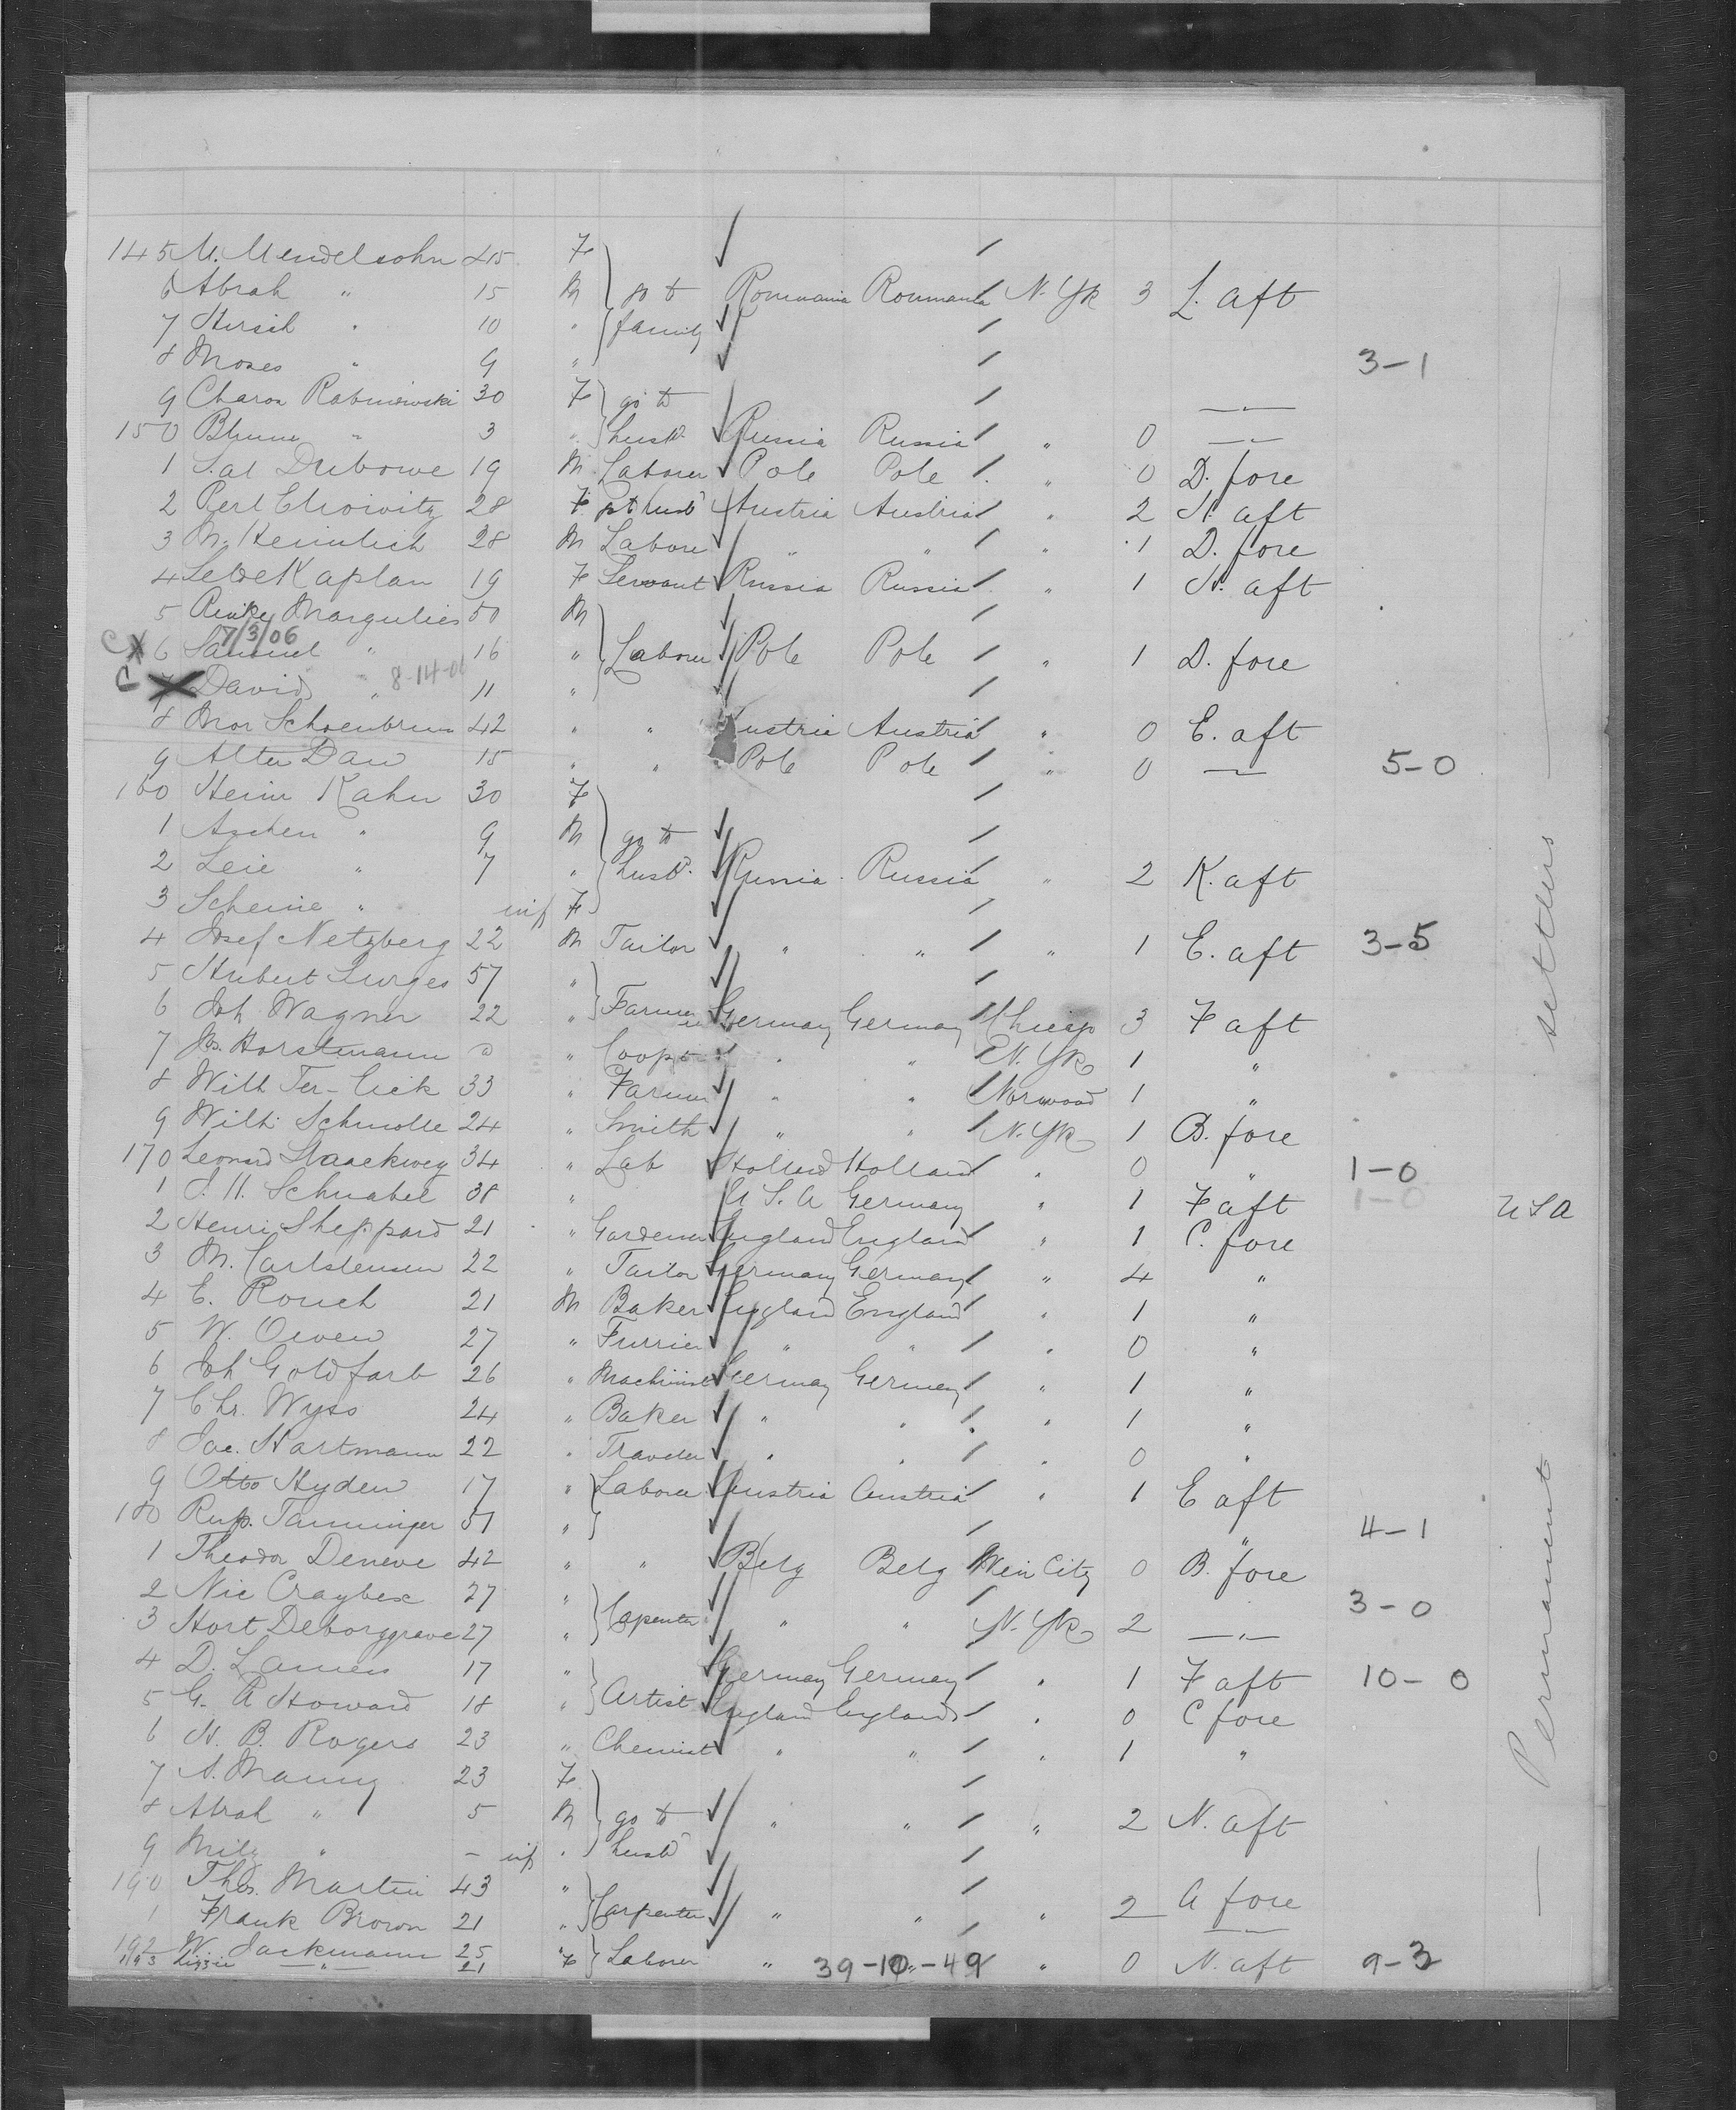 145 M. Mendelsohn 45 F
6 Abrah " 15 M go to Roumania Roumania N. Yk 3 L. aft
7 Hersch " 10 " family
8 Moses " 9 " 3-1
9 Charon Rabiniewski 30 F go to
150 Blume " 3 " husd. Russia Russia " 0 — " —
1 Sal Dubowe 19 M. Laborer Pole Pole " 0 D. fore
2 Perl 28 F gt husd Austria Austria " 2 N. aft
3 M. Heimlich 28 M Labore " " " 1 D. fore
4 Kaplan 19 F Servant Russia Russia " 1 N. aft
5 Margulies 50 M
7/3/06
C X 6 Samuel " 16 " Laborer Pole Pole " 1 D. fore
C X 7 David " 8-14-06 11 "
8 Mor Schoenbrun 42 " " Austria Austria " 0 E. aft
9 Alter Daw 15 " " Pole Pole " 0 — 5-0
160 Kahn 30 F
1 " 9 M go to
2 Leie " 7 " husd. Russia Russia " 2 K. aft
3 Scheine " inf F
4 Josef Netzberg 22 M Tailor " " " 1 E. aft 3-5
5 Hubert Lurges 57 "
6 Joh Wagner 22 " Farmer Germany Germany Chicago 3 F aft
7 Jos. Horstmann " Cooper " " N. Yk 1 "
8 Will 33 " Farmer " " Norwood 1 "
9 Wilh. Schmolle 24 " Smith " " N. Yk 1 B. fore
170 Leonard 34 " Lab Holland Holland " 0 " 1-0
1 J. H. Schnabel 38 " U S. A Germany " 1 F aft 1-0 USA
2 Henri Sheppard 21 " Gardener England England " 1 C. fore
3 M. Carlstensen 22 " Tailor Germany Germany " 4 "
4 E. Rouch 21 M Baker England England " 1 "
5 W. Owen 27 " Furrier " " " 0 "
6 Joh Goldfarb 26 " Machinist Germany Germany " 1 "
7 Chr. Wyss 24 " Baker " " " 1 "
8 Jac. Hartmann 22 " Traveler " " " 0 "
9 Otto Hyden 17 " Laborer Austria Austria " 1 E aft
180 Rup. Tanninger 51 " " 4-1
1 Theodor Deneve 42 " " Belg Belg City 0 B. fore
2 Nic Craybex 27 " 3-0
3 Hort Deborggrave 27 " Capenter " " N. Yk 2 — " —
4 D. Lamers 17 " Germany Germany " 1 F aft 10-0
5 G. R Howard 18 " Artist England England " 0 C fore
6 H. B. Rogers 23 " Chemist " " " 1 "
7 A. Manny 23 F
8 Abrah " 5 M go to " " " 2 N. aft
9 " - inf " husd
190 Thos. Martin 43 "
1 Frank Brown 21 " Carpenter " " " 2 A fore
192 W. Jackmann 25 — " —
193 Lizzie — " — 21 F Laborer " 39-10-49 " 0 N. aft 9-3
— Permanent settlers —